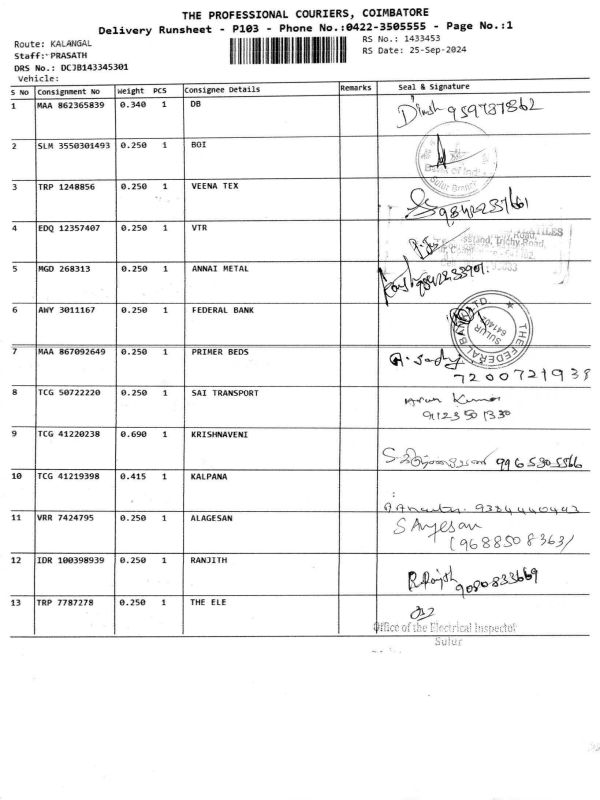 THE PROFESSIONAL COURIERS, COIMBATORE
Delivery Runsheet - P103 - Phone No.:0422-3505555 - Page No.:1
Route: KALANGAL
RS No.: 1433453
Staff: PRASATH
RS Date: 25-Sep-2024
DRS No.: DCJB143345301
Vehicle:
S No Consignment No Weight PCS Consignee Details Remarks Seal & Signature
1 MAA 862365839 0.340 1 DB
Dinesh 959787862
2 SLM 3550301493 0.250 1 BOI
Bank of India
Sulur Branch
3 TRP 1248856 0.250 1 VEENA TEX
9842237661
4 EDQ 12357407 0.250 1 VTR
Trichy Road,
5 MGD 268313 0.250 1 ANNAI METAL
6 AWY 3011167 0.250 1 FEDERAL BANK
THE FEDERAL BANK LTD
SULUR
641402
7 MAA 867092649 0.250 1 PRIMER BEDS
7200721938
8 TCG 50722220 0.250 1 SAI TRANSPORT
Arun Kumar
9 TCG 41220238 0.690 1 KRISHNAVENI
9965305566
10 TCG 41219398 0.415 1 KALPANA
9384440443
11 VRR 7424795 0.250 1 ALAGESAN
(9688508363)
12 IDR 100398939 0.250 1 RANJITH
9080833669
13 TRP 7787278 0.250 1 THE ELE
Office of the Electrical Inspector
Sulur